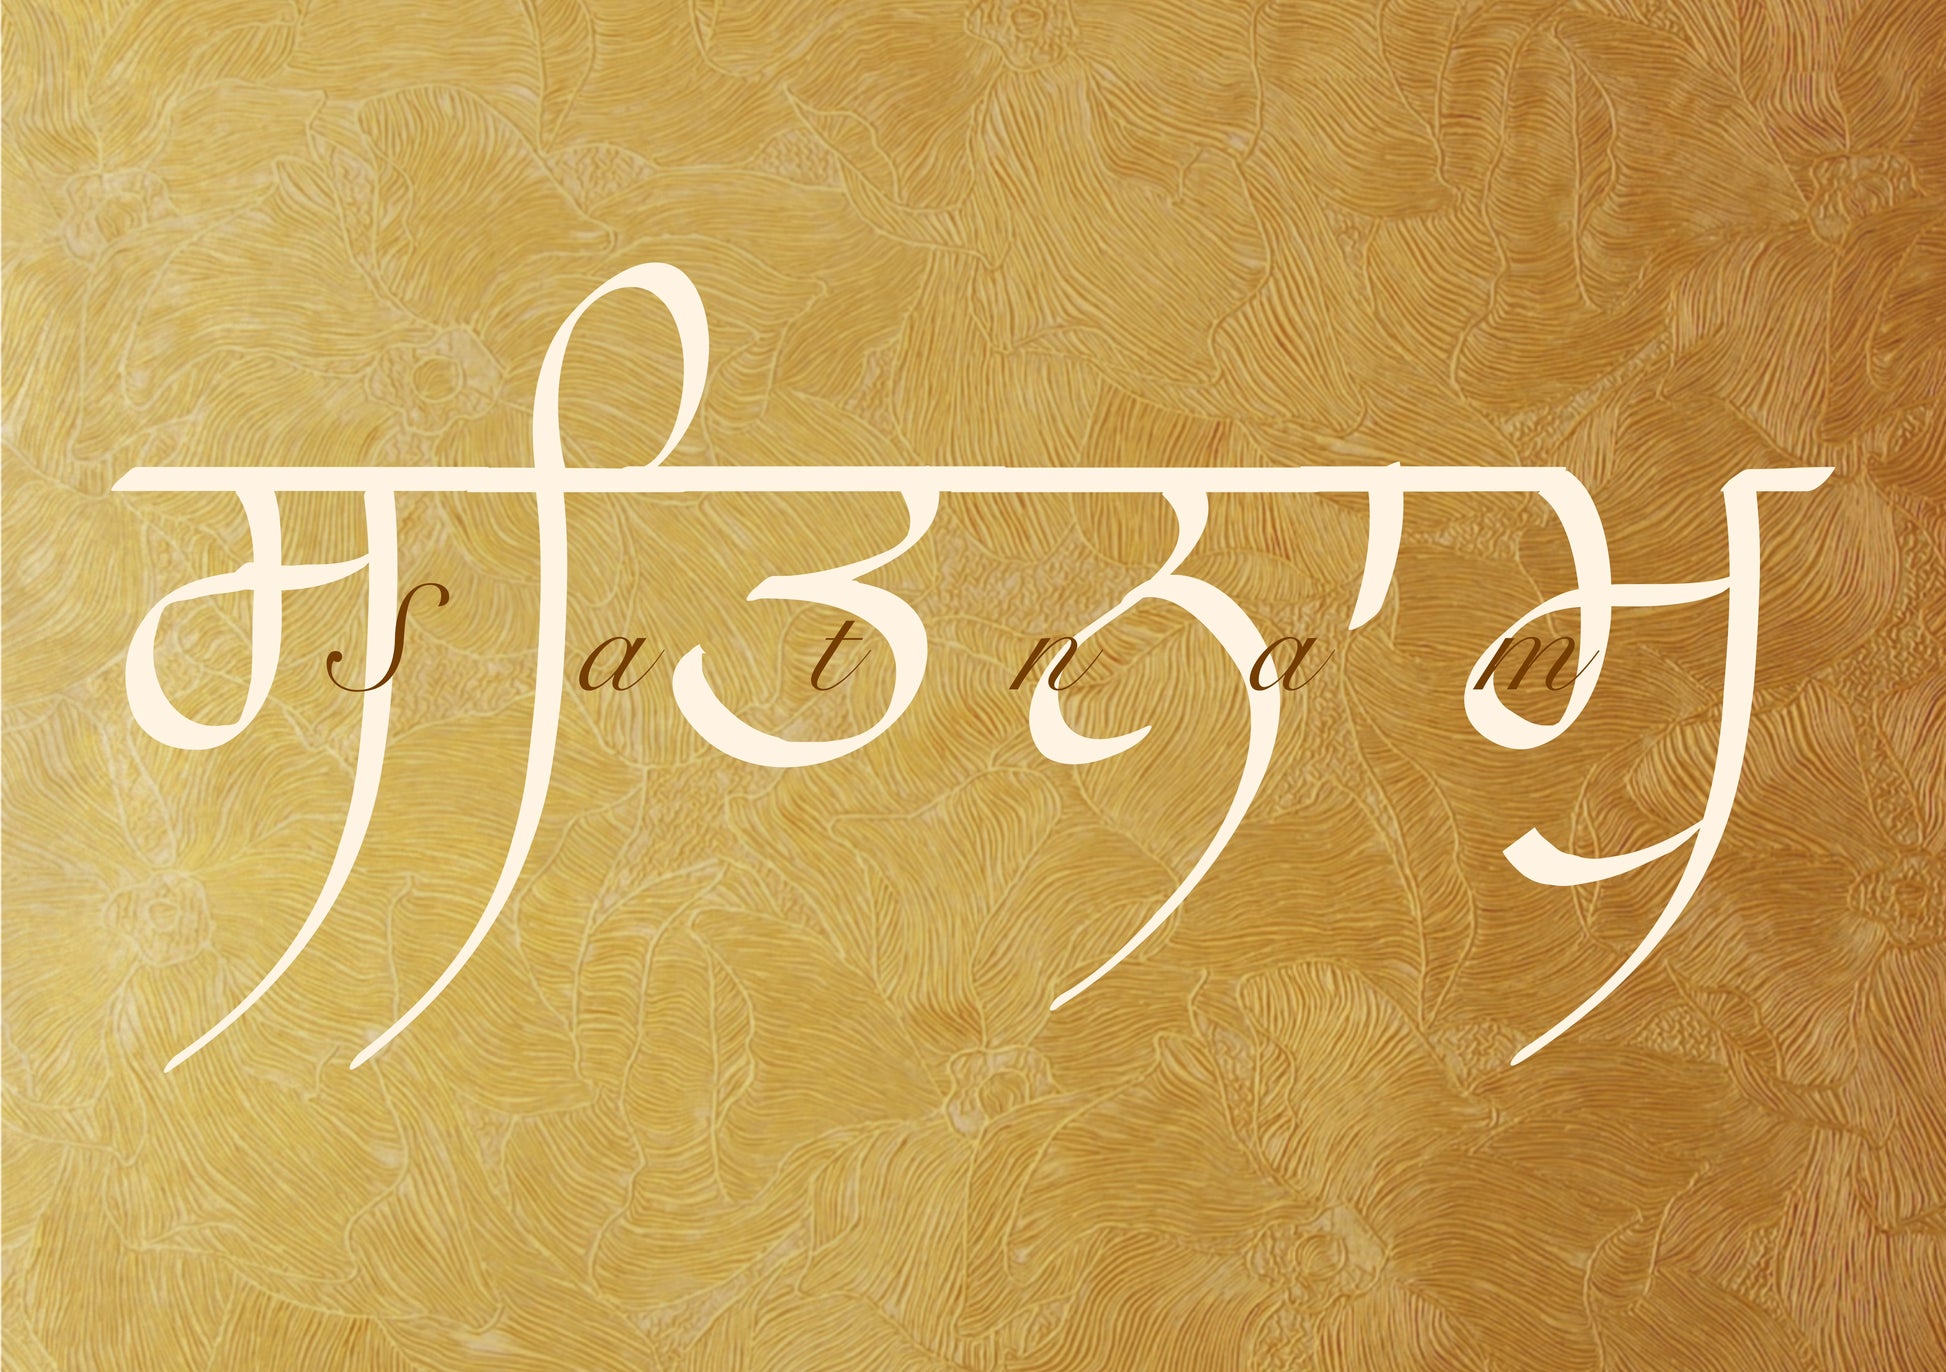 ਸਤਿਨਾਮੁ
Satnam